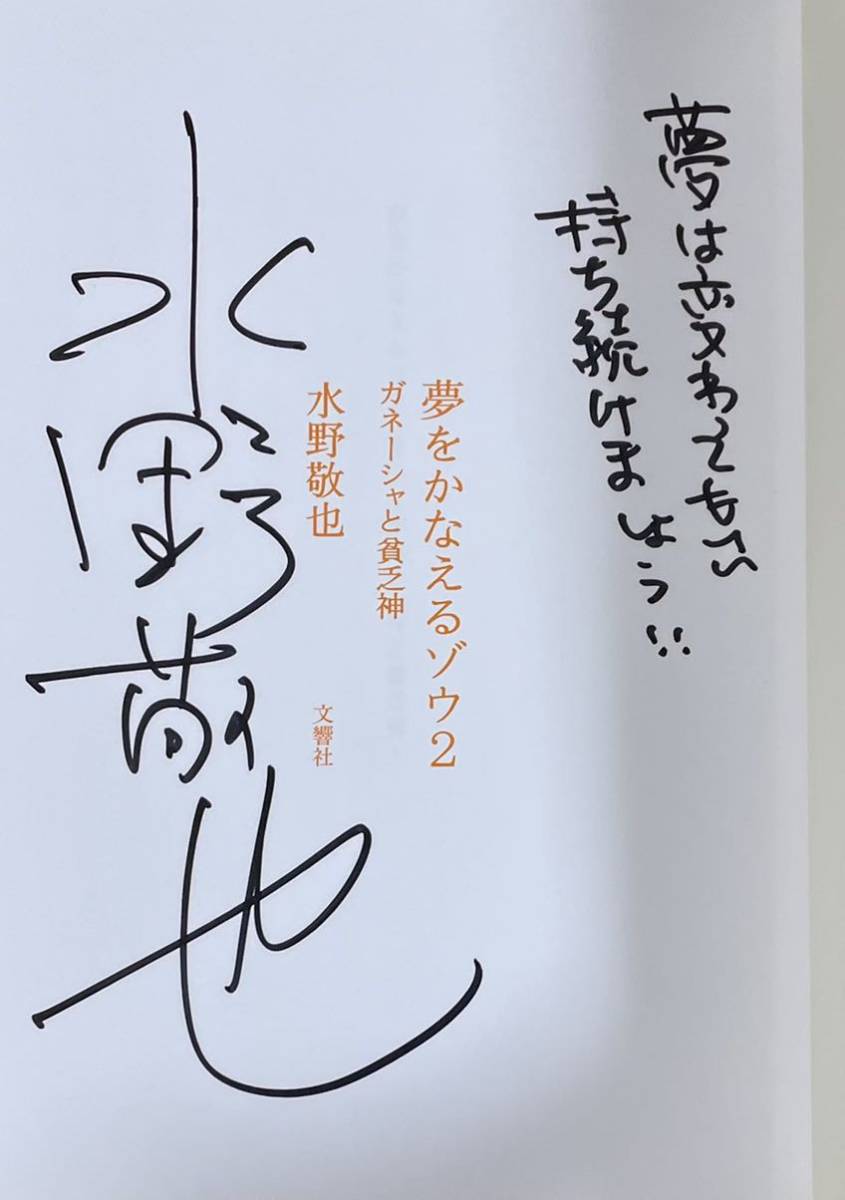 夢は変わってもいい
持ち続けましょう!!
夢をかなえるゾウ2
ガネーシャと貧乏神
水野敬也
文響社
水野敬也